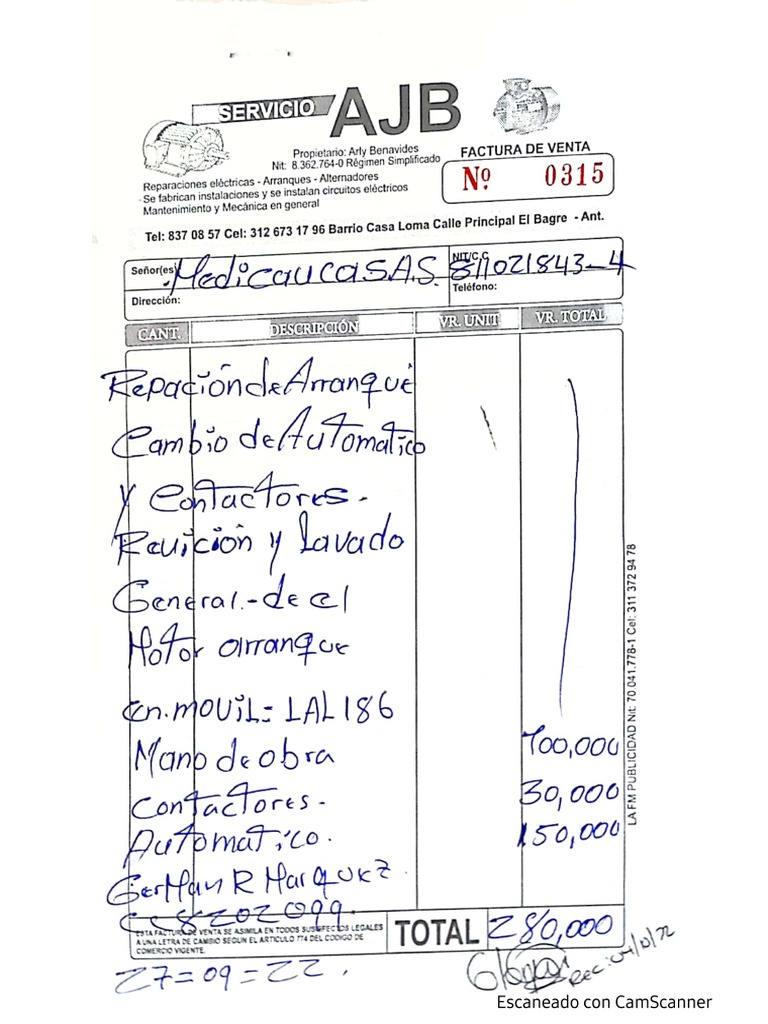 SERVICIO AJB
Propietario: Arly Benavides
Nit: 8.362.764-0 Régimen Simplificado
Reparaciones eléctricas - Arranques - Alternadores
Se fabrican instalaciones y se instalan circuitos eléctricos
Mantenimiento y Mecánica en general
FACTURA DE VENTA
Nº 0315
Tel: 837 08 57 Cel: 312 673 17 96 Barrio Casa Loma Calle Principal El Bagre - Ant.
Señor(es) Medicauca S.A.S. NIT/C.C 811021843-4
Dirección: Teléfono:
CANT. DESCRIPCIÓN VR. UNIT VR. TOTAL
Repación de Arranque
Cambio de Automatico
Y Contactores.
Reuición y Lavado
General.-de el
Motor arranque
en.movil= LAL186
Mano de obra 100,000
Contactores. 30,000
Automatico. 150,000
German R Marquez
cc 8202099.
ESTA FACTURA DE VENTA SE ASIMILA EN TODOS SUS EFECTOS LEGALES
A UNA LETRA DE CAMBIO SEGUN EL ARTICULO 774 DEL CODIGO DE
COMERCIO VIGENTE.
TOTAL 280,000
27=09=22.
LA FM PUBLICIDAD Nit: 70.041.778-1 Cel: 311 372 94 78
Escaneado con CamScanner